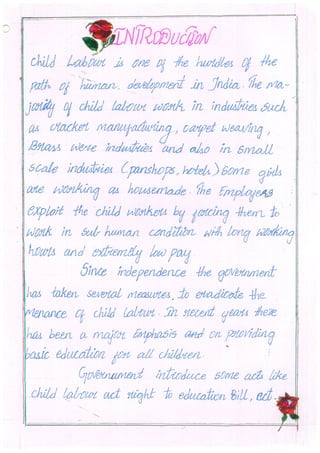 INTRODUCTION
Child Labour is one of the hurdles of the
path of human development in India. The ma-
jority of child labour work in industries such
as cracker manufacturing, carpet weaving,
Brass were industries and also in small
scale industries (panshops, hotels) Some girls
are working as housemade. The Employers
exploit the child workers by forcing them to
work in sub human condition with long working
hours and extremely low pay
Since independence the government
has taken several measures, to eradicate the
menance of child labour. In recent years there
has been a major Emphasis and on providing
basic education for all children.
Government introduce some acts like
child labour act right to education Bill, act